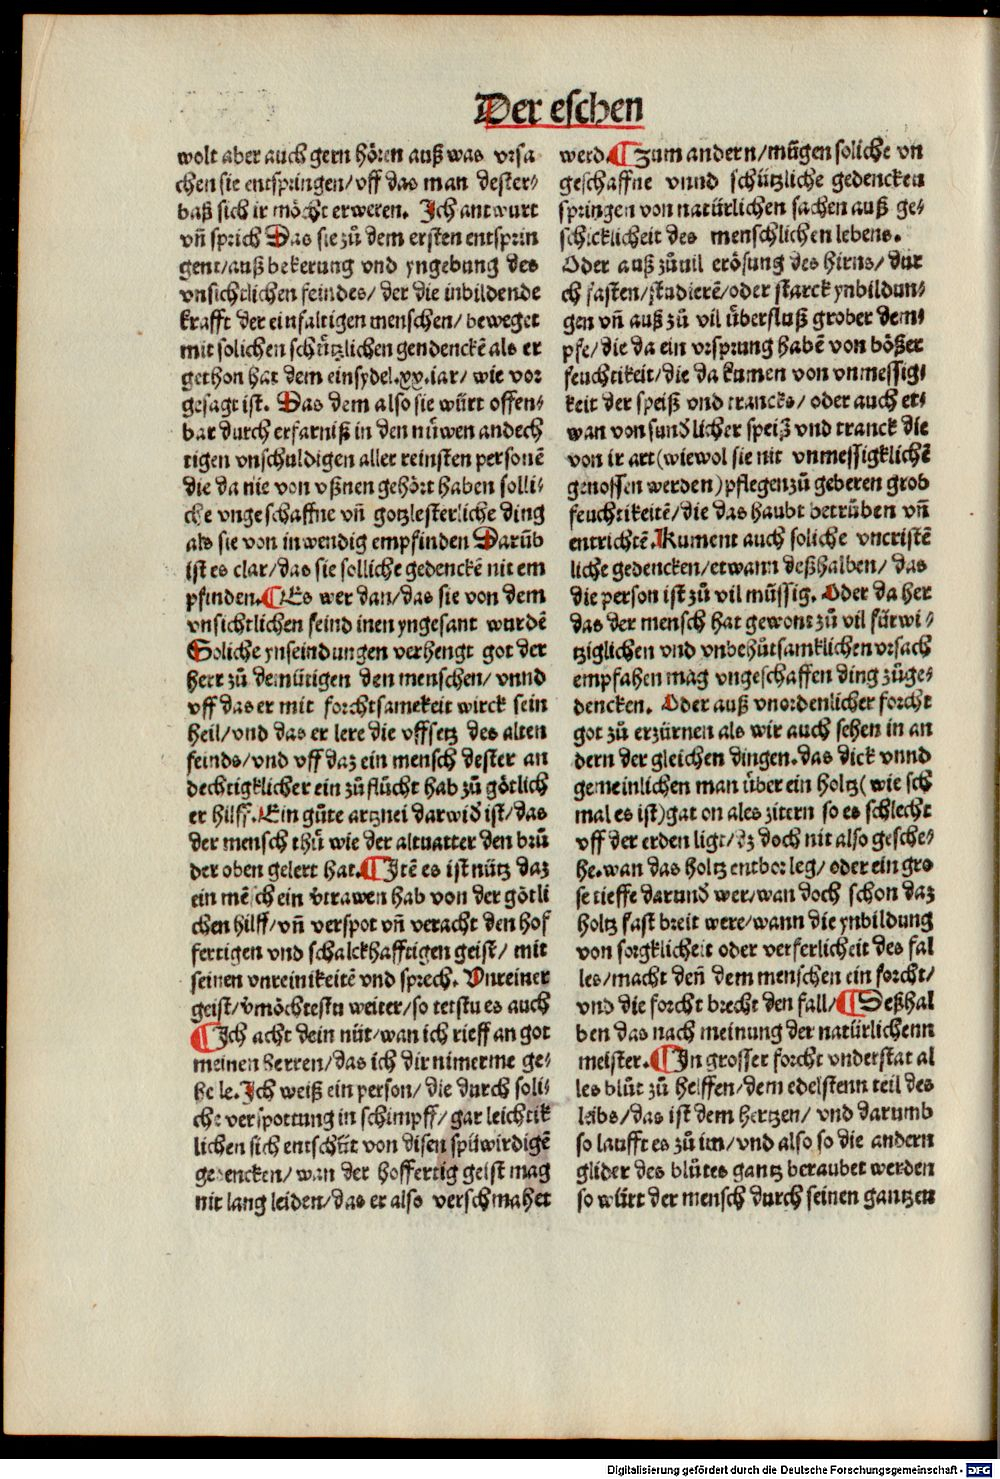 Der eschen
wolt aber auch gern hören auß was vrsa
chen sie entspringen/vff das man dester⸗
baß sich ir möcht erweren. Ich antwurt
vn̄ sprich Das sie zů dem ersten entsprin
gent/auß bekerung vnd yngebung des
vnsichtlichen feindes/der die inbildende
krafft der einfaltigen menschen/beweget
mit solichen schützlichen gendenckē als er
gethon hat dem einsydel.xx.iar/wie vor
gesagt ist. Das dem also sie würt offen⸗
bar durch erfarniß in den nüwen andech
tigen vnschuldigen aller reinsten personē
die da nie von vßnen gehört haben solli⸗
che vngeschaffne vn̄ gotzlesterliche ding
als sie von inwendig empfinden Darūb
ist es clar/das sie solliche gedenckē nit em
pfinden.¶Es wer dan/das sie von dem
vnsichtlichen feind inen yngesant wurdē
Soliche ynseindungen verhengt got der
herr zů demütigen den menschen/vnnd
vff das er mit forchtsamekeit wirck sein
heil/vnd das er lere die vffsetz des alten
feinds/vnd vff daz ein mensch dester an
dechtigklicher ein zůflücht hab zů götlich
er hilff.Ein gůte artznei darwid ist/das
der mensch thů wie der altuatter den brů
der oben gelert hat.¶Itē es ist nütz daz
ein mēsch ein v̄trawen hab von der götli
chen hilff/vn̄ verspot vn̄ veracht den hof
fertigen vnd schalckhafftigen geist/mit
seinen vnreinikeitē vnd sprech. Vnreiner
geist/v̄möchtestu weiter/so tetstu es auch
¶Ich acht dein nüt/wan ich rieff an got
meinen herren/das ich dir nimerme ge⸗
hele.Ich weiß ein person/die durch soli⸗
che verspottung in schimpff/gar leichtik
lichen sich entschüt von disen spüwirdigē
gedencken/wan der hoffertig geist mag
nit lang leiden/das er also verschmahet
werd.¶Zum andern/mügen soliche vn
geschaffne vnnd schützliche gedencken
springen von natürlichen sachen auß ge⸗
schicklicheit des menschlichen lebens.
Oder auß zůuil erösung des hirns/dur
ch fasten/studierē/oder starck ynbildun⸗
gen vn̄ auß zů vil überfluß grober dem⸗
pfe/die da ein vrsprung habē von bößer
feuchtikeit/die da kumen von vnmessig⸗
keit der speiß vnd trancks/oder auch et⸗
wan von sund̄licher speiß vnd tranck die
von ir art(wiewol sie nit vnmessigklichē
genossen werden)pflegen zů geberen grob
feuchtikeitē/die das haubt betrüben vn̄
entrichtē.Kument auch soliche vncristē
liche gedencken/etwann deßhalben/das
die person ist zů vil müssig. Oder da her
das der mensch hat gewont zů vil fürwi⸗
tziglichen vnd vnbehůtsamklichen vrsach
empfahen mag vngeschaffen ding zůge⸗
dencken. Oder auß vnordenlicher forcht
got zů erzürnen als wir auch sehen in an
dern der gleichen dingen.das dick vnnd
gemeinlichen man über ein holtz(wie sch
mal es ist)gat on ales zitern so es schlecht
vff der erden ligt/dz doch nit also gesche⸗
he.wan das holtz entbor leg/oder ein gro
se tieffe darund̄ wer/wan doch schon daz
holtz fast breit were/wann die ynbildung
von sorgklicheit oder verferlicheit des fal
les/macht den̄ dem menschen ein forcht/
vnd die forcht brecht den fall/¶Deßhal
ben das nach meinung der natürlichenn
meister.¶In grosser forcht vnderstat al
les blůt zů helffen/dem edelstenn teil des
leibs/das ist dem hertzen/vnd darumb
so laufft es zů im/vnd also so die andern
glider des blůtes gantz beraubet werden
so würt der mensch durch seinen gantzen
Digitalisierung gefördert durch die Deutsche Forschungsgemeinschaft - DFG